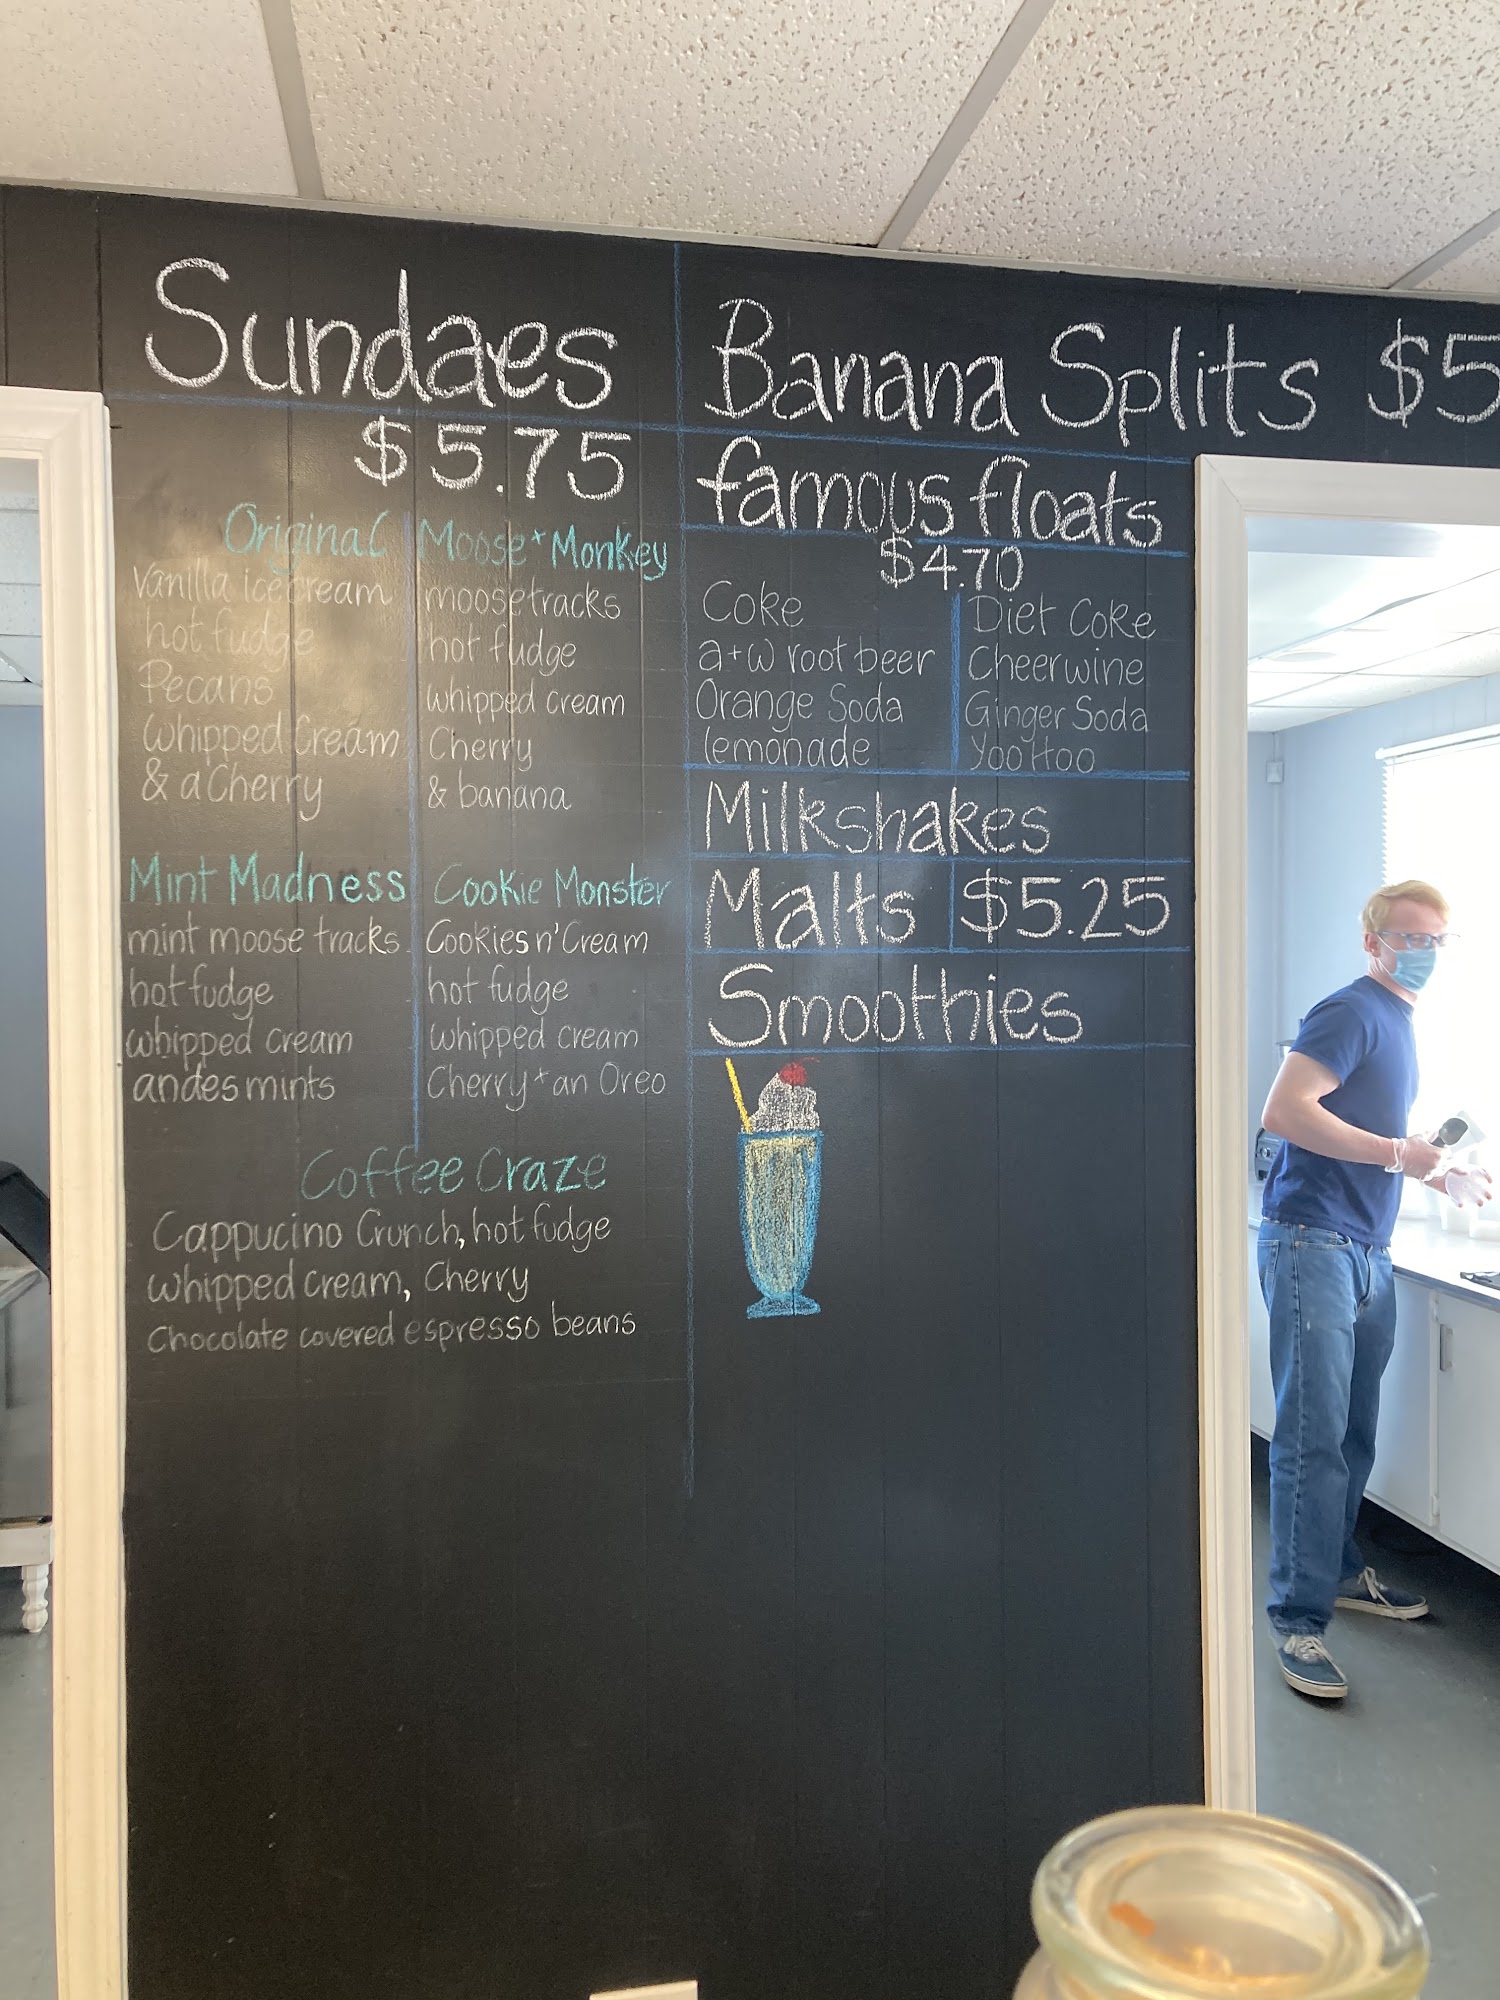 Sundaes
$5.75
Original
vanilla ice cream
hot fudge
Pecans
whipped Cream
& a Cherry
Moose + Monkey
moosetracks
hot fudge
whipped cream
Cherry
& banana
Mint Madness
mint moose tracks
hot fudge
whipped cream
andes mints
Cookie Monster
Cookies n' Cream
hot fudge
whipped cream
Cherry + an Oreo
Coffee Craze
Cappucino Crunch, hot fudge
whipped cream, Cherry
Chocolate covered espresso beans
Banana Splits $5
famous floats
$4.70
Coke
a+w root beer
Orange Soda
lemonade
Diet Coke
Cheerwine
Ginger Soda
Yoo Hoo
Milkshakes
Malts $5.25
Smoothies